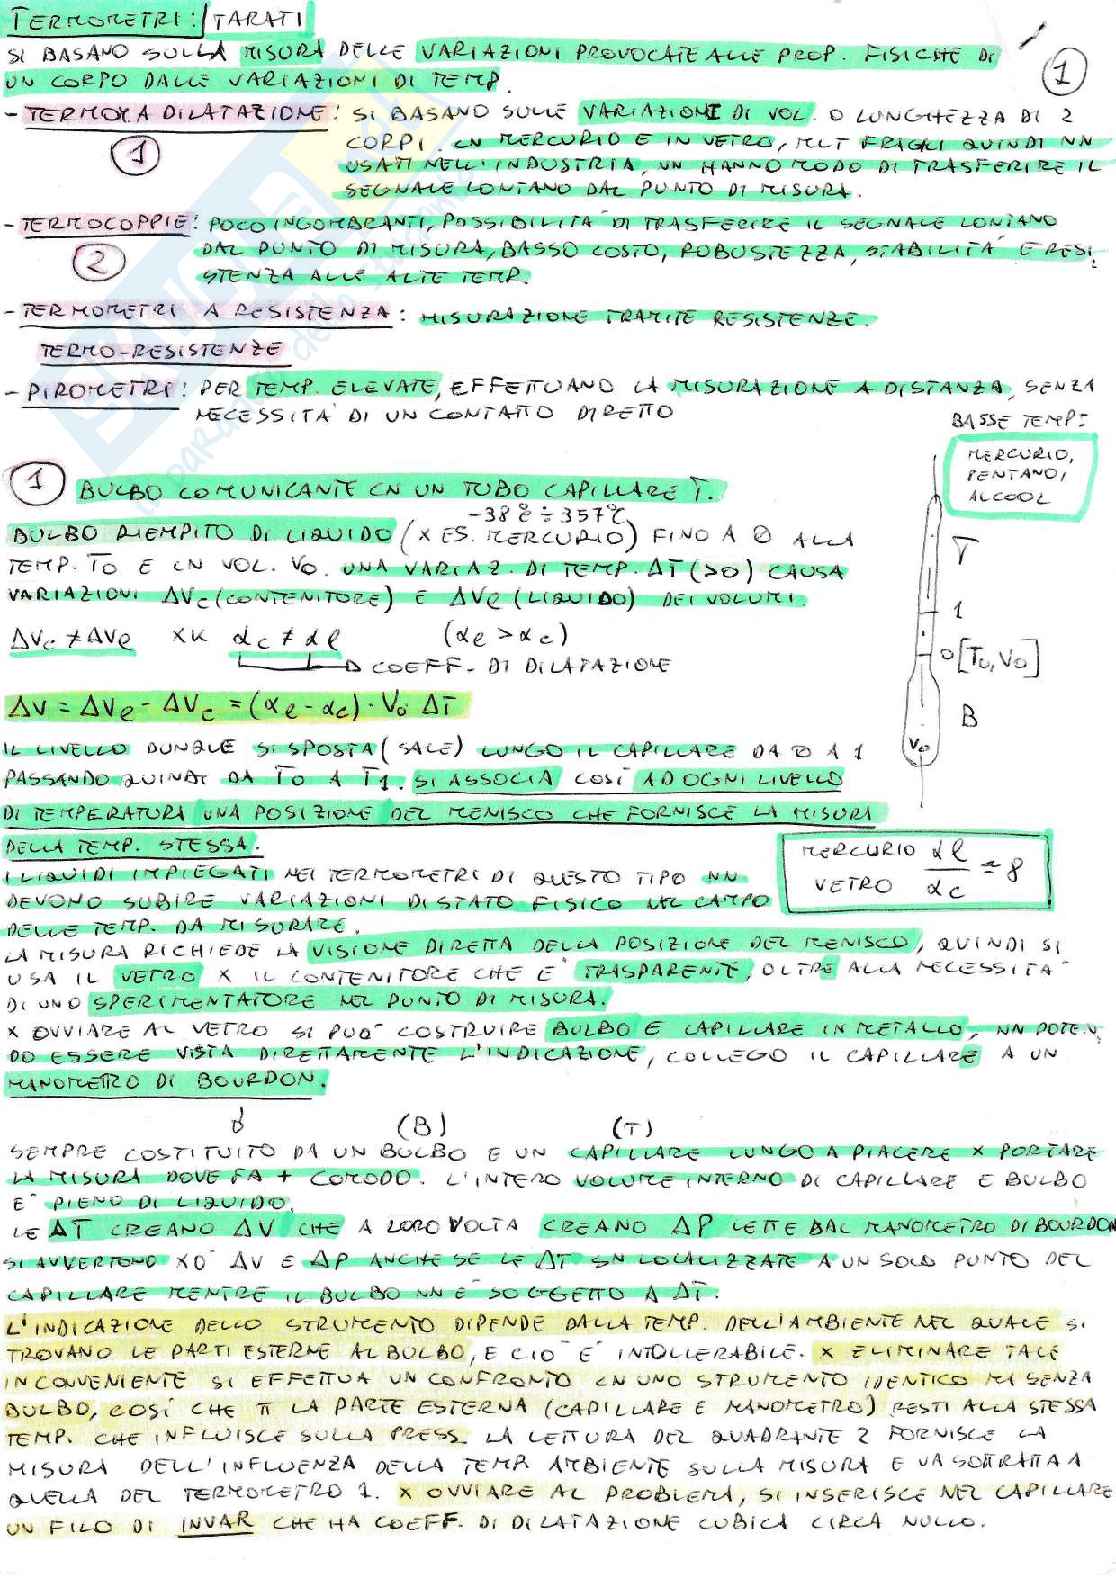 TERMOMETRI: TARATI
SI BASANO SULLA MISURA DELLE VARIAZIONI PROVOCATE ALLE PROP. FISICHE DI
UN CORPO DALLE VARIAZIONI DI TEMP.
1
- TERMO A DILATAZIONE: SI BASANO SULLE VARIAZIONI DI VOL. O LUNGHEZZA DI 2
1
CORPI. CN MERCURIO E IN VETRO, MLT FRAGILI QUINDI NN
USATI NELL'INDUSTRIA, UN HANNO MODO DI TRASFERIRE IL
SEGNALE LONTANO DAL PUNTO DI MISURA.
- TERMOCOPPIE: POCO INGOMBRANTI, POSSIBILITA' DI TRASFERIRE IL SEGNALE LONTANO
2
DAL PUNTO DI MISURA, BASSO COSTO, ROBUSTEZZA, STABILITA' E RESI_
STENZA ALLE ALTE TEMP.
- TERMOMETRI A RESISTENZA: MISURAZIONE TRAMITE RESISTENZE.
TERMO-RESISTENZE
- PIROMETRI: PER TEMP. ELEVATE, EFFETTUANO LA MISURAZIONE A DISTANZA, SENZA
NECESSITA' DI UN CONTATTO DIRETTO
BASSE TEMP:
MERCURIO,
PENTANO,
ALCOOL
1 BULBO COMUNICANTE CN UN TUBO CAPILLARE T.
-38°C ÷ 357°C
BULBO RIEMPITO DI LIQUIDO (X ES. MERCURIO) FINO A 0 ALLA
TEMP. T0 E CN VOL. V0. UNA VARIAZ. DI TEMP. ΔT (>0) CAUSA
VARIAZIONI ΔVc (CONTENITORE) E ΔVl (LIQUIDO) DEI VOLUMI.
ΔVc ≠ ΔVl XK αc ≠ αl (αl > αc)
COEFF. DI DILATAZIONE
ΔV = ΔVl - ΔVc = (αl - αc) · V0 ΔT
T
1
0 [T0, V0]
B
V0
IL LIVELLO DUNQUE SI SPOSTA (SALE) LUNGO IL CAPILLARE DA 0 A 1
PASSANDO QUINDI DA T0 A T1. SI ASSOCIA COSI' AD OGNI LIVELLO
DI TEMPERATURA UNA POSIZIONE DEL MENISCO CHE FORNISCE LA MISURA
DELLA TEMP. STESSA.
MERCURIO αl
VETRO αc = 8
I LIQUIDI IMPIEGATI NEI TERMOMETRI DI QUESTO TIPO NN
DEVONO SUBIRE VARIAZIONI DI STATO FISICO NEL CAMPO
DELLE TEMP. DA MISURARE.
LA MISURA RICHIEDE LA VISIONE DIRETTA DELLA POSIZIONE DEL MENISCO, QUINDI SI
USA IL VETRO X IL CONTENITORE CHE E' TRASPARENTE, OLTRE ALLA NECESSITA'
DI UNO SPERIMENTATORE NEL PUNTO DI MISURA.
X OVVIARE AL VETRO SI PUO' COSTRUIRE BULBO E CAPILLARE IN METALLO, NN POTEN_
DO ESSERE VISTA DIRETTAMENTE L'INDICAZIONE, COLLEGO IL CAPILLARE A UN
MANOMETRO DI BOURDON.
(B) (T)
SEMPRE COSTITUITO DA UN BULBO E UN CAPILLARE LUNGO A PIACERE X PORTARE
LA MISURA DOVE FA + COMODO. L'INTERO VOLUME INTERNO DI CAPILLARE E BULBO
E' PIENO DI LIQUIDO.
LE ΔT CREANO ΔV CHE A LORO VOLTA CREANO ΔP LETTE DAL MANOMETRO DI BOURDON
SI AVVERTONO XO' ΔV E ΔP ANCHE SE LE ΔT SN LOCALIZZATE A UN SOLO PUNTO DEL
CAPILLARE MENTRE IL BULBO NN E' SOGGETTO A ΔT.
L'INDICAZIONE DELLO STRUMENTO DIPENDE DALLA TEMP. DELL'AMBIENTE NEL QUALE SI
TROVANO LE PARTI ESTERNE AL BULBO, E CIO' E' INTOLLERABILE. X ELIMINARE TALE
INCONVENIENTE SI EFFETTUA UN CONFRONTO CN UNO STRUMENTO IDENTICO MA SENZA
BULBO, COSI' CHE TT LA PARTE ESTERNA (CAPILLARE E MANOMETRO) RESTI ALLA STESSA
TEMP. CHE INFLUISCE SULLA PRESS. LA LETTURA DEL QUADRANTE 2 FORNISCE LA
MISURA DELL'INFLUENZA DELLA TEMP. AMBIENTE SULLA MISURA E VA SOTTRATTA A
QUELLA DEL TERMOMETRO 1. X OVVIARE AL PROBLEMA, SI INSERISCE NEL CAPILLARE
UN FILO DI INVAR CHE HA COEFF. DI DILATAZIONE CUBICA CIRCA NULLO.